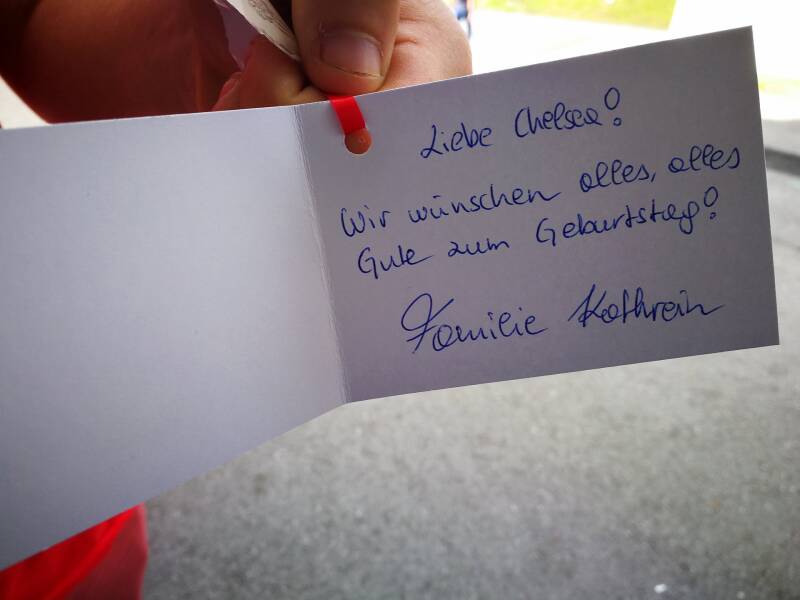 Liebe Chelsea!
Wir wünschen alles, alles
Gute zum Geburtstag!
Familie Kathrein